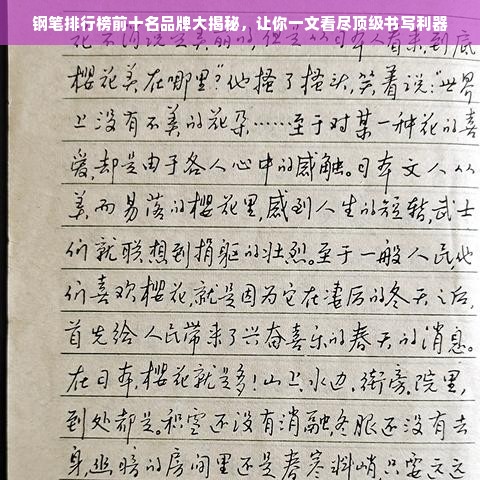 钢笔排行榜前十名品牌大揭秘，让你一文看尽顶级书写利器
花不算美，但是日本人看来，到底
樱花美在哪里？”他搔了搔头，笑着说：“世界
上没有不美的花朵……至于对某一种花的喜
爱，却是由于各人心中的感触。日本文人从
美而易落的樱花里，感到人生的短暂，武士
们就联想到捐躯的壮烈。至于一般人民，他
们喜欢樱花，就是因为它在凄厉的冬天之后，
首先给人民带来了兴奋喜乐的春天的消息。
在日本，樱花就是多！山上、水边、街旁、院里，
到处都是。积雪还没有消融，冬服还没有去
身，幽暗的房间里还是春寒料峭，只要远远